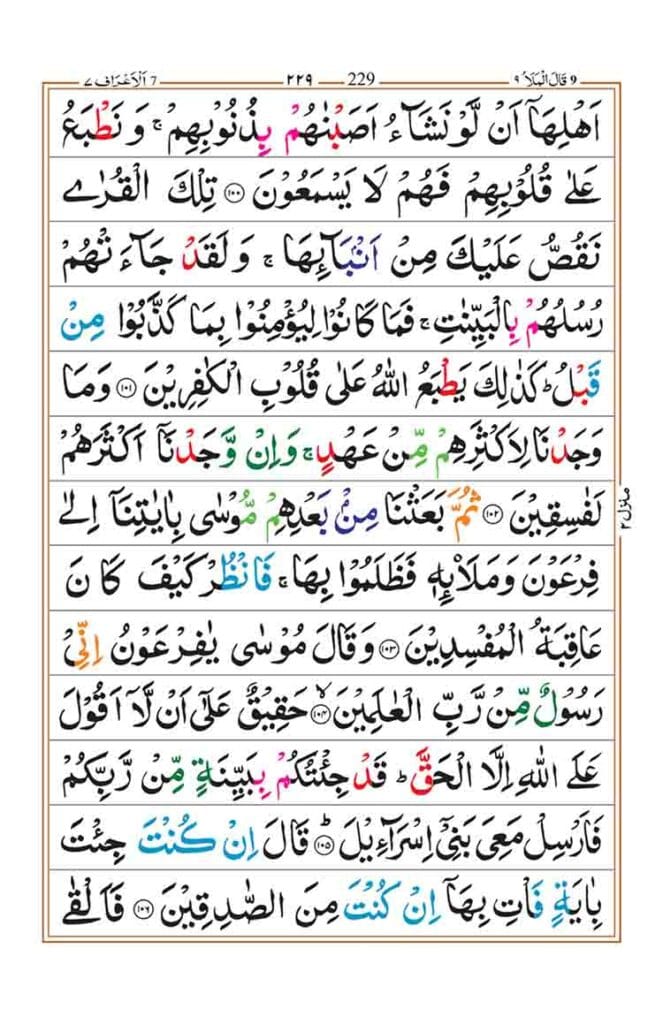 ٩ قَالَ الْمَلَاُ 9 229 ٢٢٩ 7 اَلْاَعْرَاف ٧
اَهْلِهَاۤ اَنْ لَّوْ نَشَآءُ اَصَبْنٰهُمْ بِذُنُوْبِهِمْ ۚ وَ نَطْبَعُ
عَلٰى قُلُوْبِهِمْ فَهُمْ لَا يَسْمَعُوْنَ ﴿۱۰۰﴾ تِلْكَ الْقُرٰى
نَقُصُّ عَلَيْكَ مِنْ اَنْۢبَآئِهَا ۚ وَ لَقَدْ جَآءَ تْهُمْ
رُسُلُهُمْ بِالْبَيِّنٰتِ ۚ فَمَا كَانُوْا لِيُؤْمِنُوْا بِمَا كَذَّبُوْا مِنْ
قَبْلُ ؕ كَذٰلِكَ يَطْبَعُ اللّٰهُ عَلٰى قُلُوْبِ الْكٰفِرِيْنَ ﴿۱۰۱﴾ وَمَا
وَجَدْنَا لِاَكْثَرِهِمْ مِّنْ عَهْدٍ ۚ وَاِنْ وَّجَدْنَاۤ اَكْثَرَهُمْ
لَفٰسِقِيْنَ ﴿۱۰۲﴾ ثُمَّ بَعَثْنَا مِنْۢ بَعْدِهِمْ مُّوْسٰى بِاٰيٰتِنَاۤ اِلٰى
منزل ٢
فِرْعَوْنَ وَمَلَا۟ئِهٖ فَظَلَمُوْا بِهَا ۚ فَانْظُرْ كَيْفَ كَا نَ
عَاقِبَةُ الْمُفْسِدِيْنَ ﴿۱۰۳﴾ وَقَالَ مُوْسٰى يٰفِرْعَوْنُ اِنِّىْ
رَسُوْلٌ مِّنْ رَّبِّ الْعٰلَمِيْنَ ﴿۱۰۴﴾ ۙ حَقِيْقٌ عَلٰۤى اَنْ لَّاۤ اَقُوْلَ
عَلَى اللّٰهِ اِلَّا الْحَقَّ ؕ قَدْ جِئْتُكُمْ بِبَيِّنَةٍ مِّنْ رَّبِّكُمْ
فَاَرْسِلْ مَعِىَ بَنِىْۤ اِسْرَآءِيْلَ ﴿۱۰۵﴾ ؕ قَالَ اِنْ كُنْتَ جِئْتَ
بِاٰيَةٍ فَاْتِ بِهَاۤ اِنْ كُنْتَ مِنَ الصّٰدِقِيْنَ ﴿۱۰۶﴾ فَاَلْقٰى